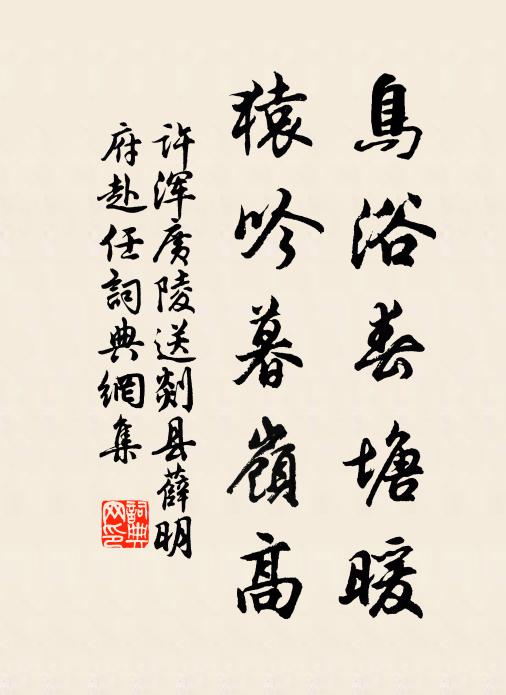 鳥浴春塘暖
猿吟暮嶺高
许渾廣陵送剡县薛明
府赴任詞典網集
詞典
网印